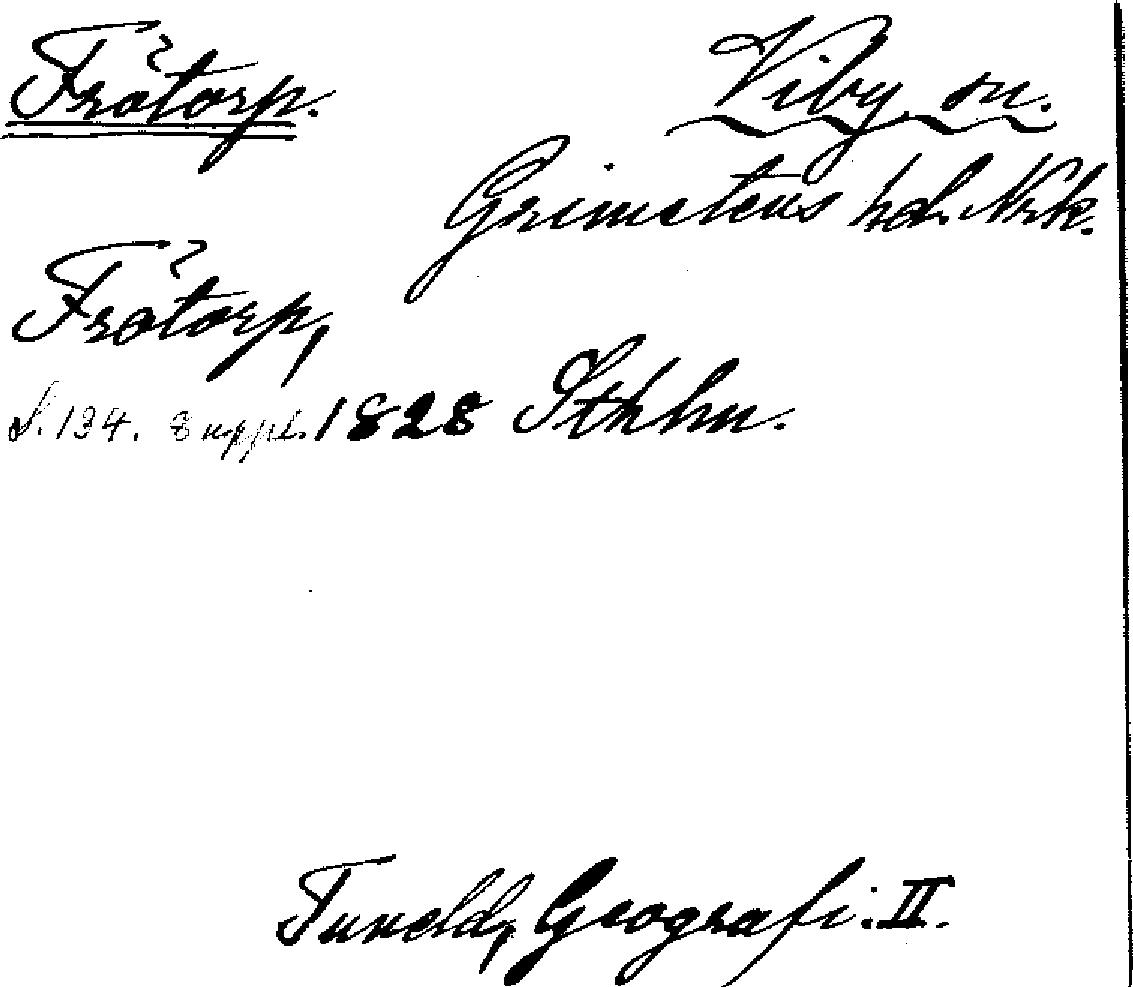 Frötorp.
Viby sn.
Grimstens hd. Nrk.
Frötorp,
S. 134. Suppl. 1828 Sthlm.
Tuneld, Geografi. II.